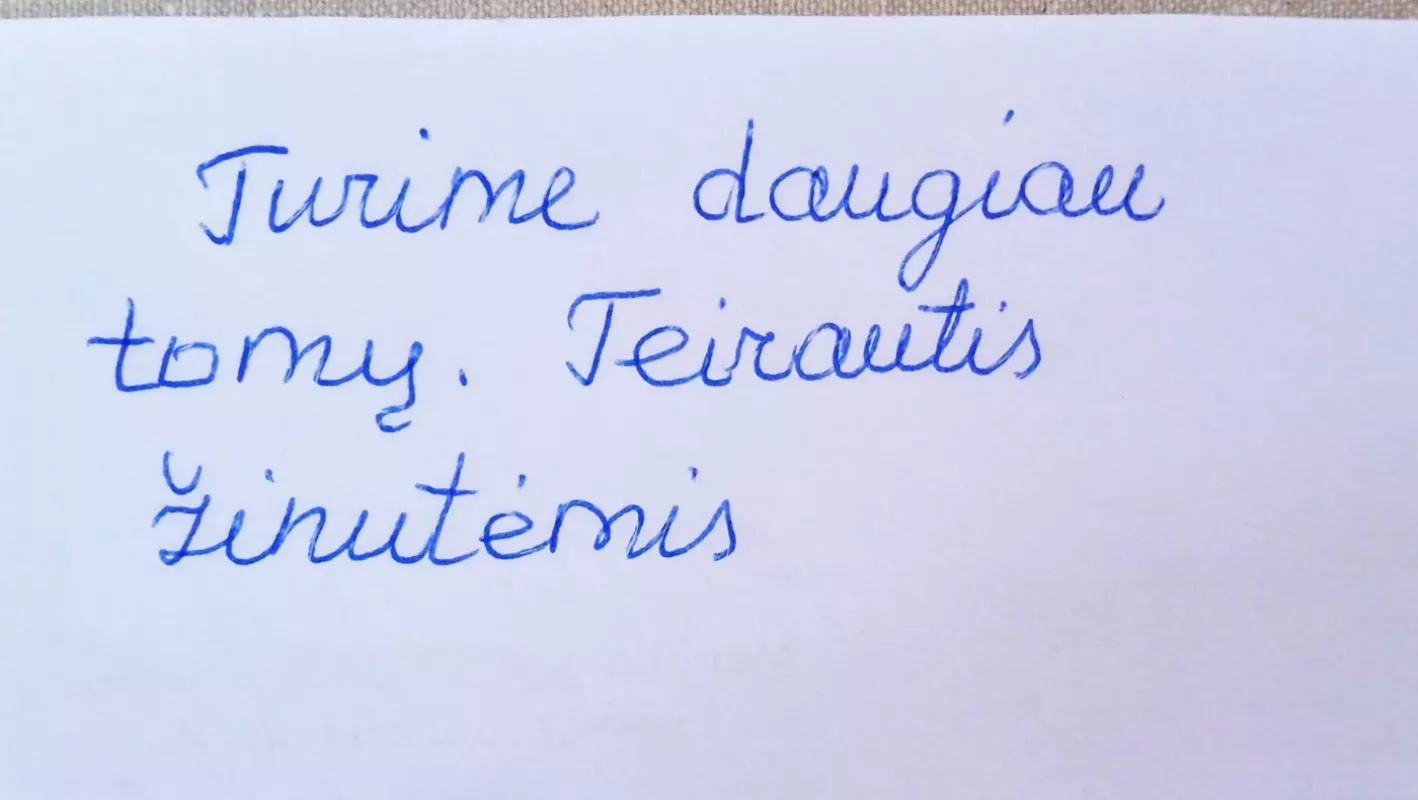 Turime daugiau
tomų. Teirautis
žinutėmis